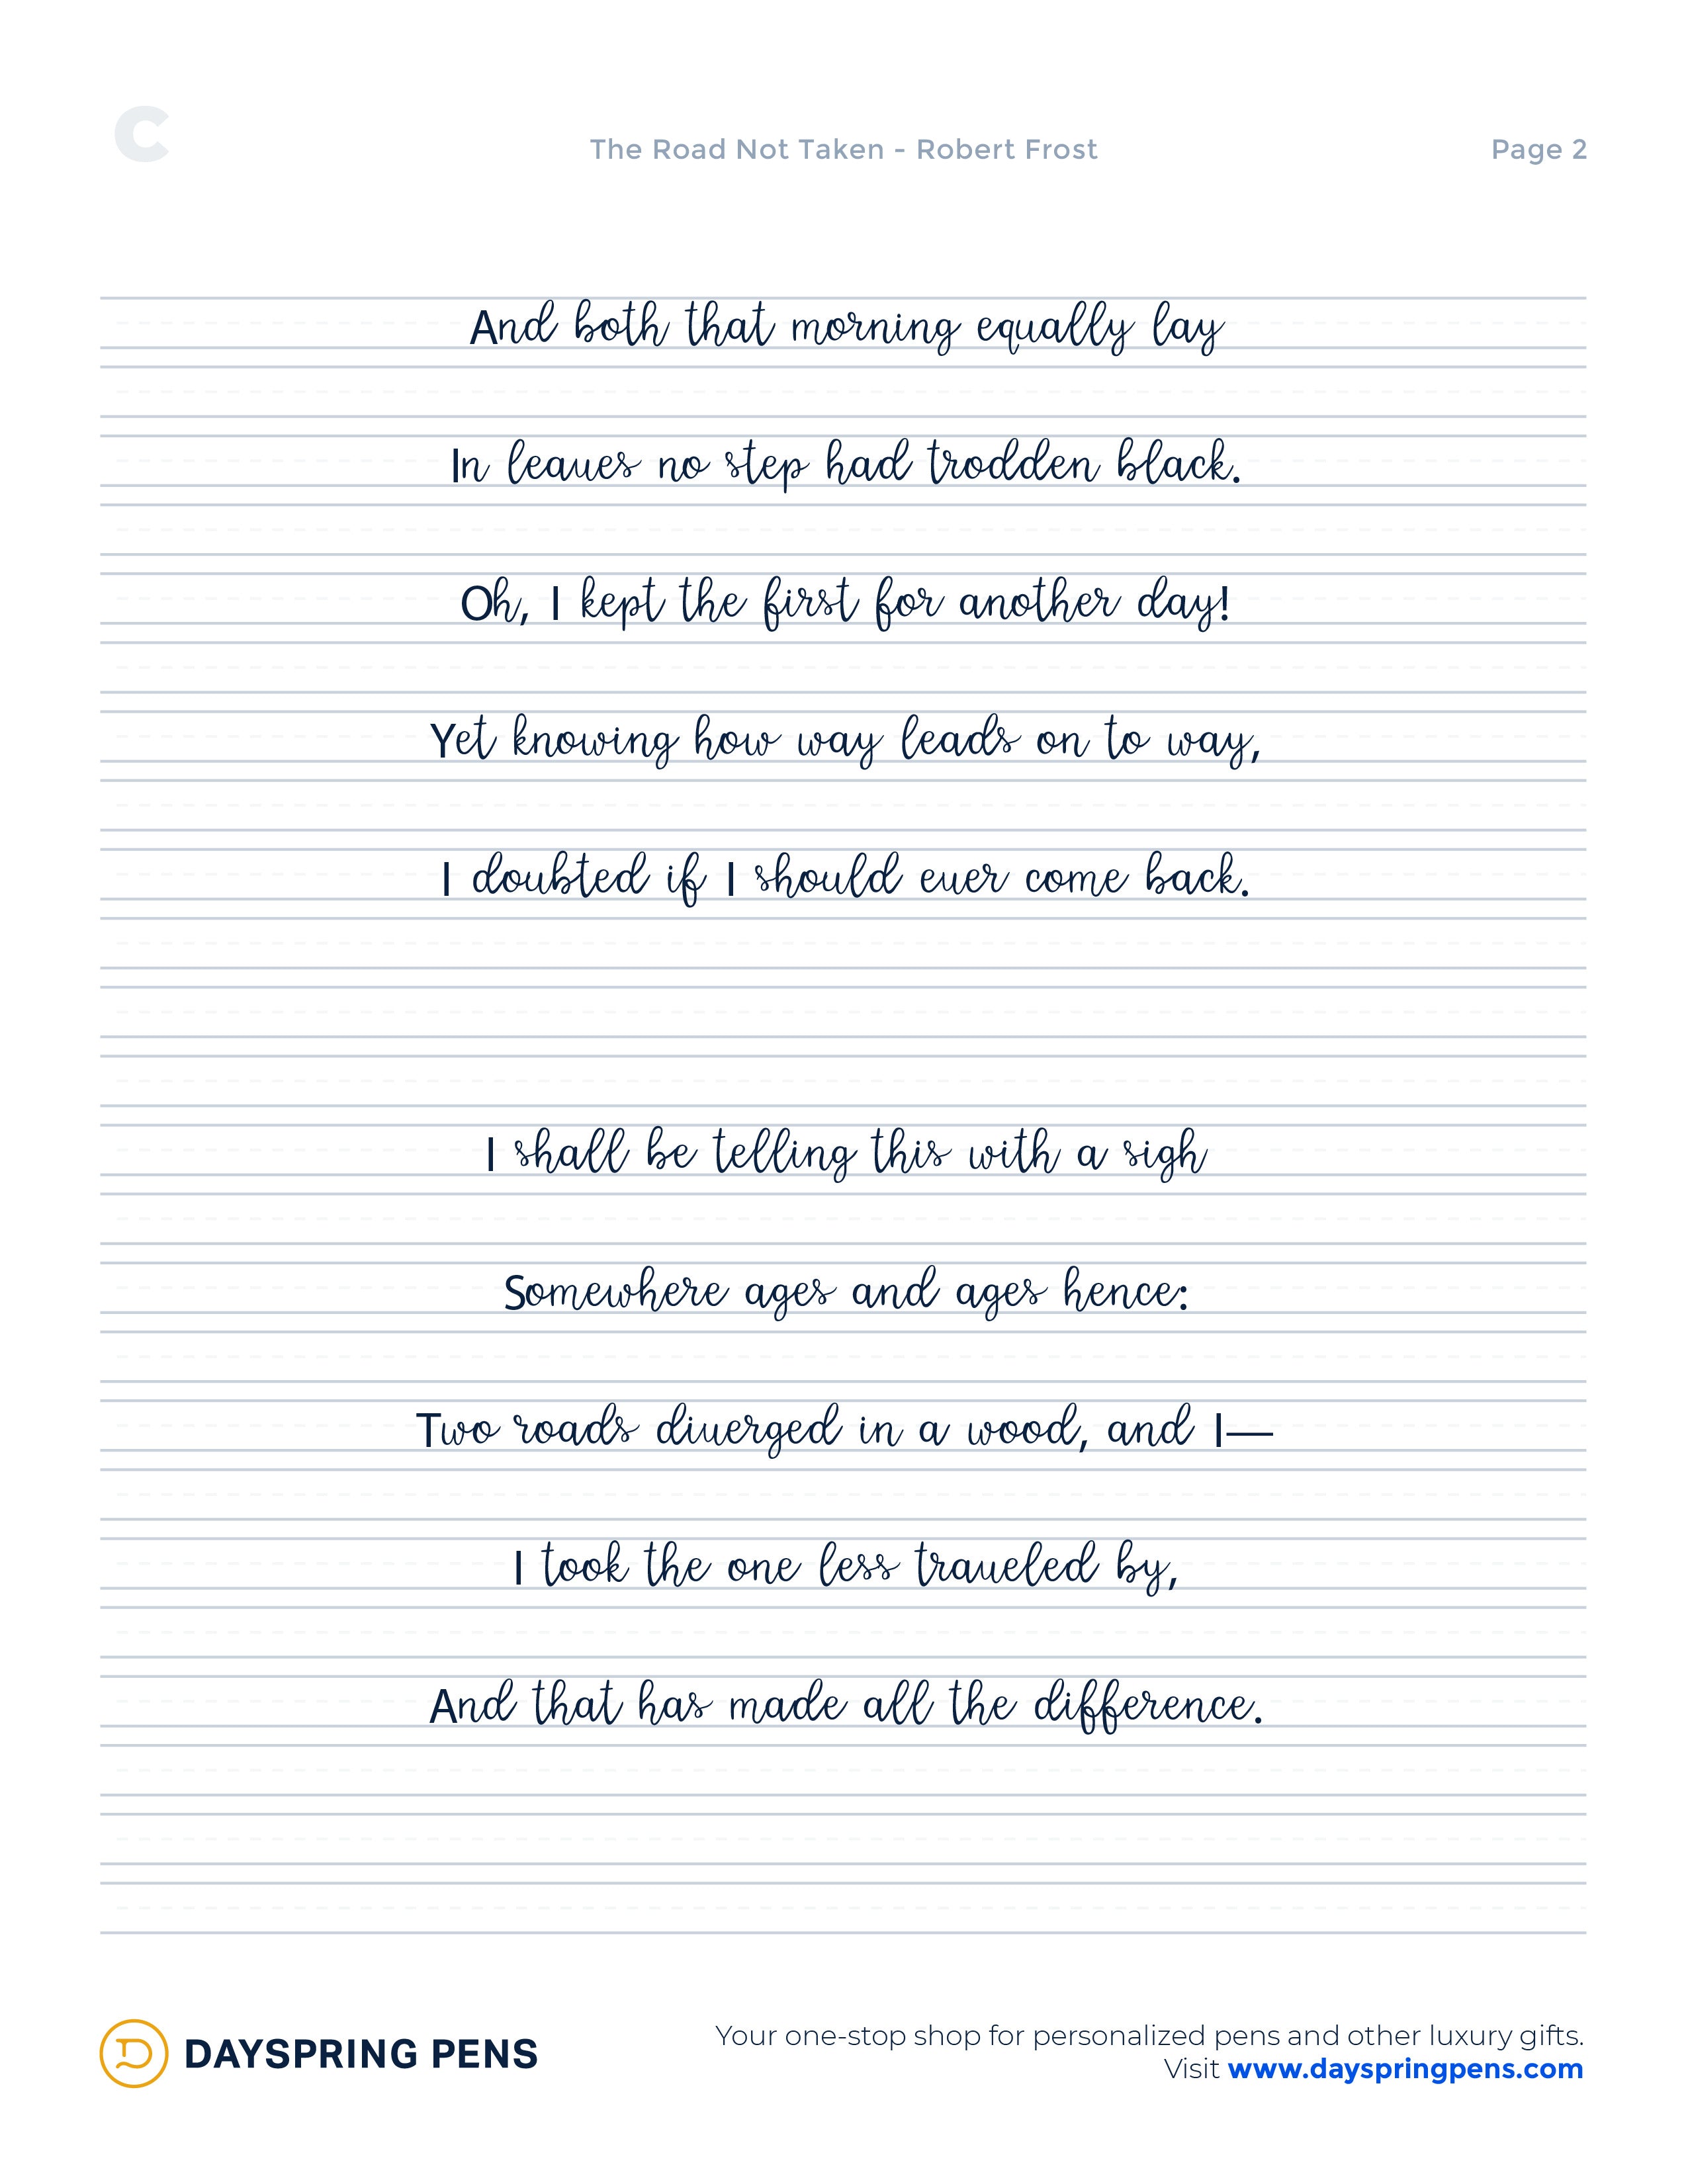 C
The Road Not Taken - Robert Frost
Page 2
And both that morning equally lay
In leaves no step had trodden black.
Oh, I kept the first for another day!
Yet knowing how way leads on to way,
I doubted if I should ever come back.
I shall be telling this with a sigh
Somewhere ages and ages hence:
Two roads diverged in a wood, and I—
I took the one less traveled by,
And that has made all the difference.
DAYSPRING PENS
Your one-stop shop for personalized pens and other luxury gifts.
Visit www.dayspringpens.com